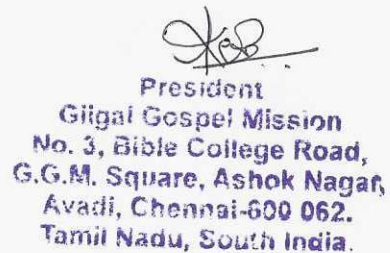 President
Gilgal Gospel Mission
No. 3, Bible College Road,
G.G.M. Square, Ashok Nagar,
Avadi, Chennai-600 062.
Tamil Nadu, South India.